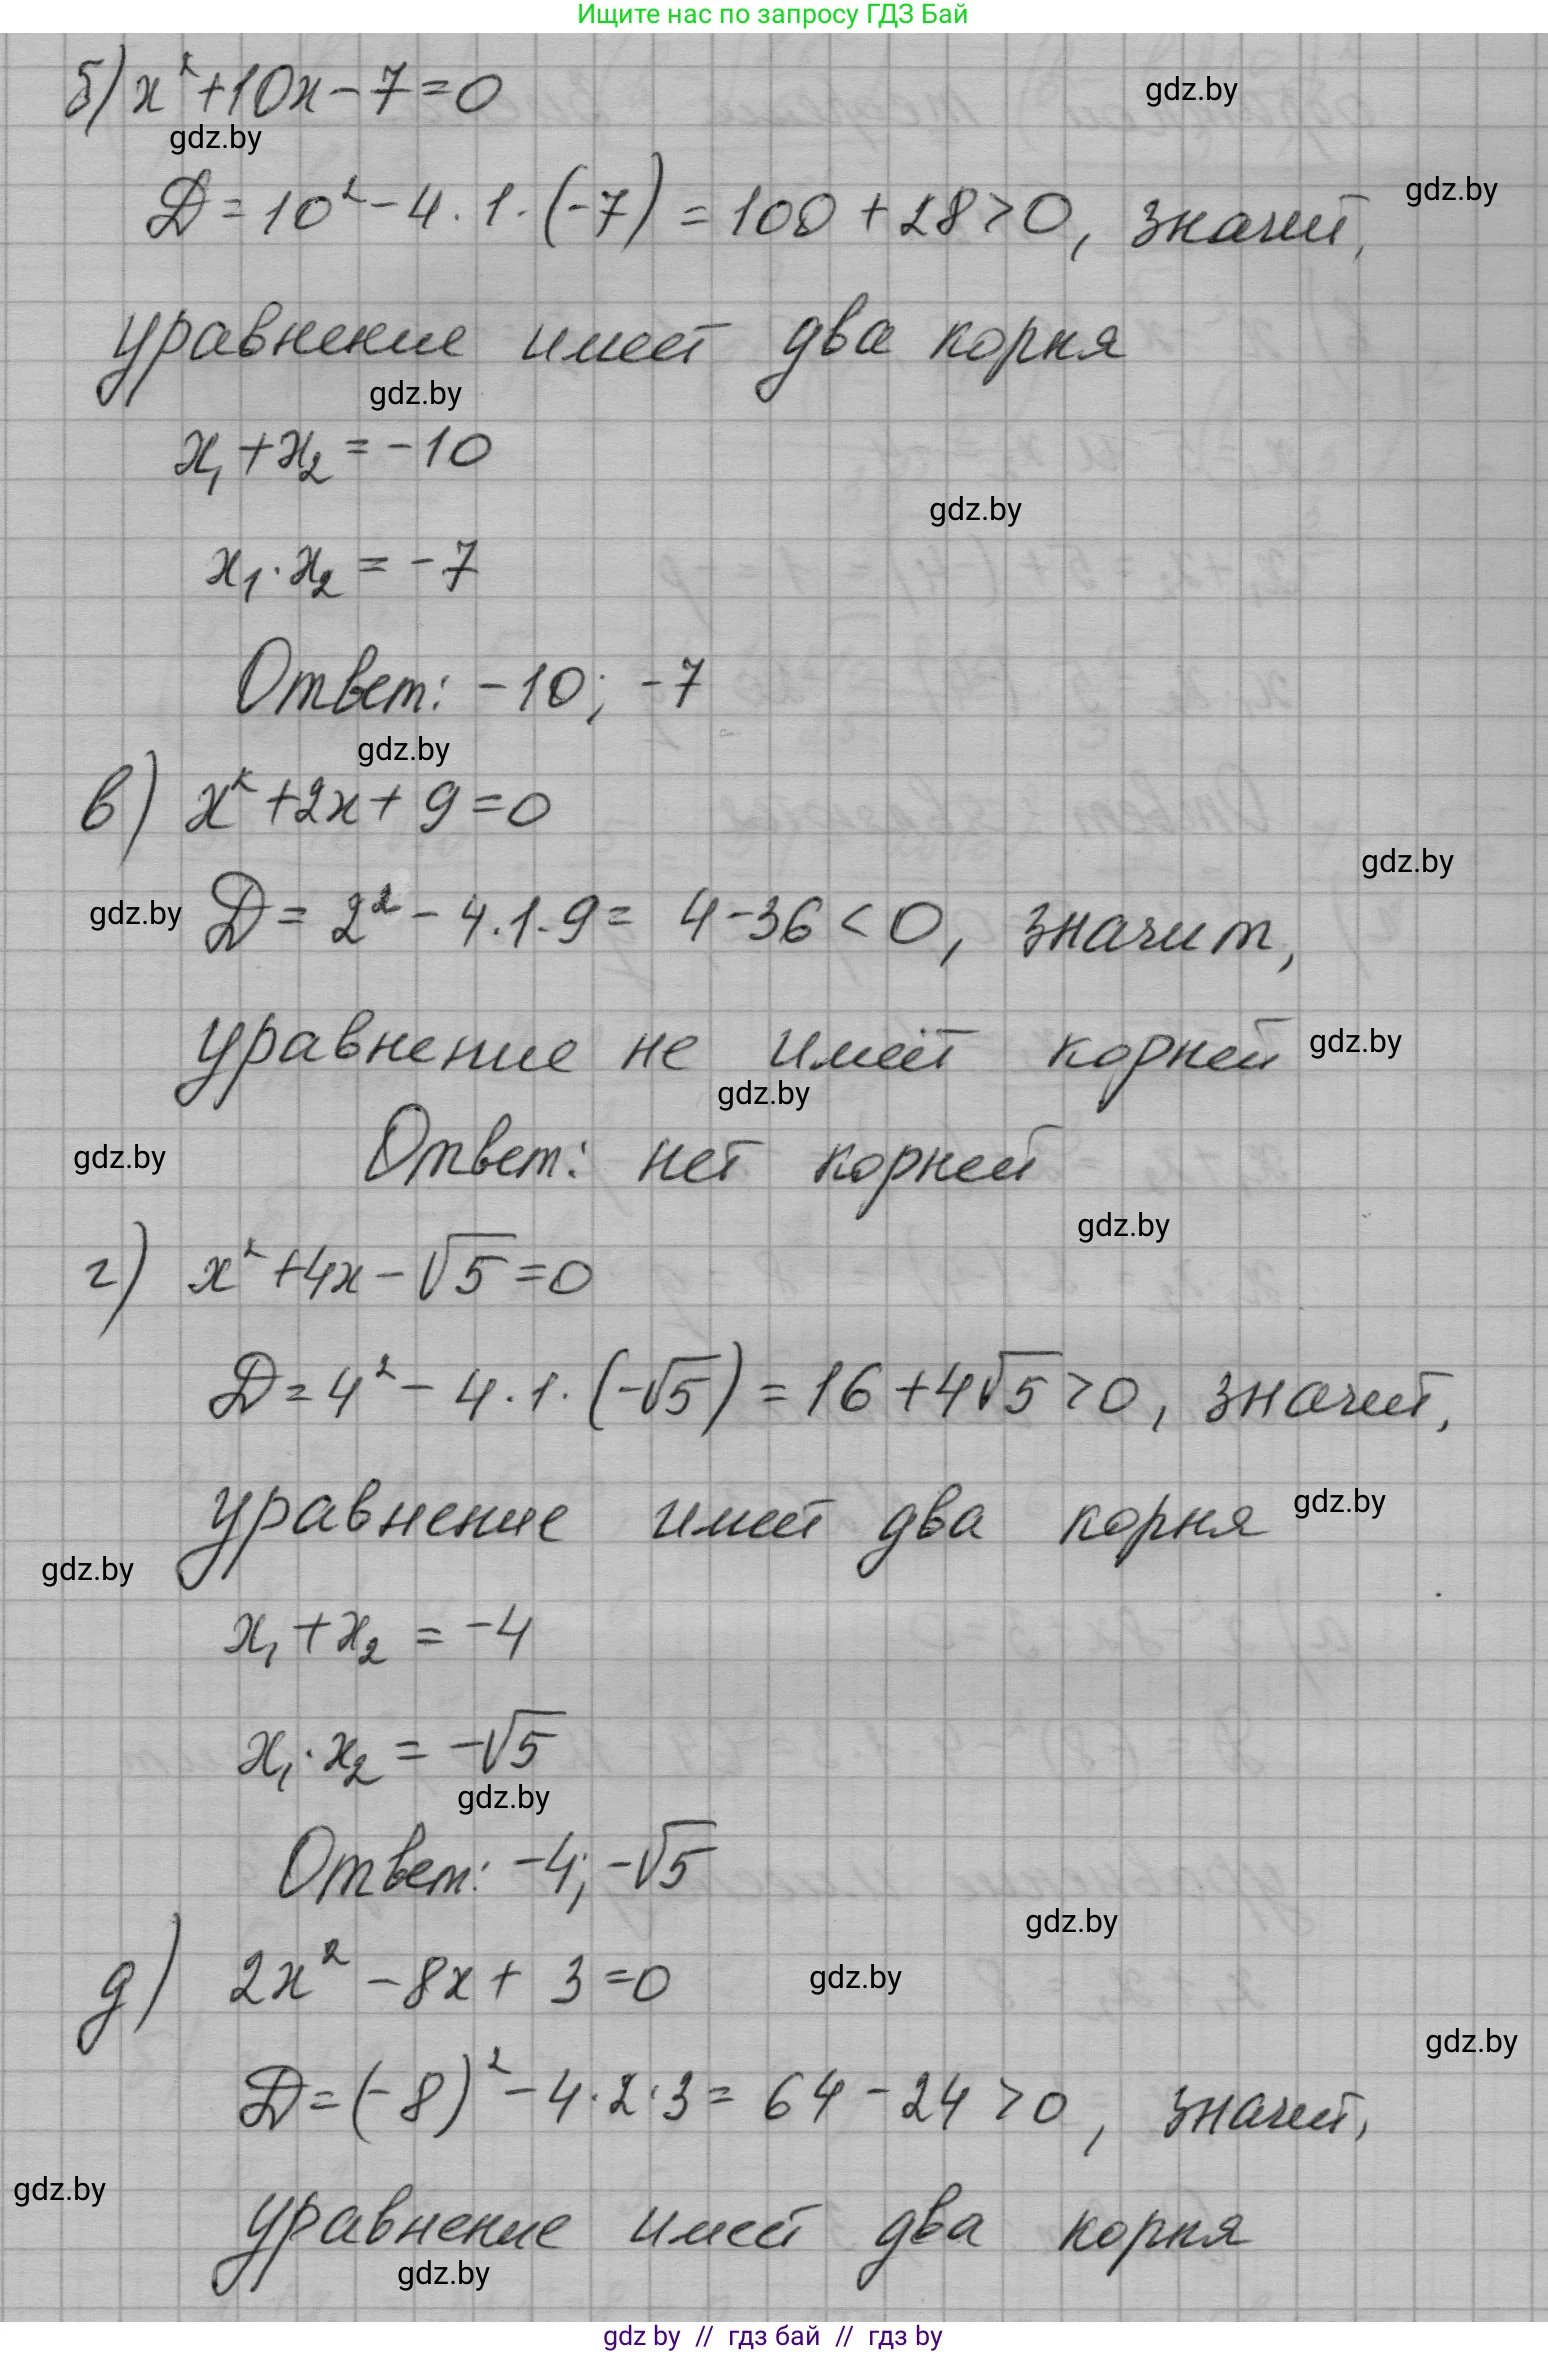 Ищите нас по запросу ГДЗ Бай
б) x² + 10x - 7 = 0
gdz.by
gdz.by
D = 10² - 4 · 1 · (-7) = 100 + 28 > 0, значит,
gdz.by
уравнение имеет два корня
gdz.by
x₁ + x₂ = -10
gdz.by
x₁ · x₂ = -7
Ответ: -10; -7
gdz.by
в) x² + 2x + 9 = 0
gdz.by
gdz.by
D = 2² - 4 · 1 · 9 = 4 - 36 < 0, значит,
уравнение не имеет корней
gdz.by
gdz.by
Ответ: нет корней
gdz.by
gdz.by
г) x² + 4x - √5 = 0
D = 4² - 4 · 1 · (-√5) = 16 + 4√5 > 0, значит,
уравнение имеет два корня
gdz.by
gdz.by
x₁ + x₂ = -4
x₁ · x₂ = -√5
gdz.by
Ответ: -4; -√5
gdz.by
д) 2x² - 8x + 3 = 0
gdz.by
gdz.by
D = (-8)² - 4 · 2 · 3 = 64 - 24 > 0, значит,
gdz.by
уравнение имеет два корня
gdz.by
gdz by // гдз бай // гдз by